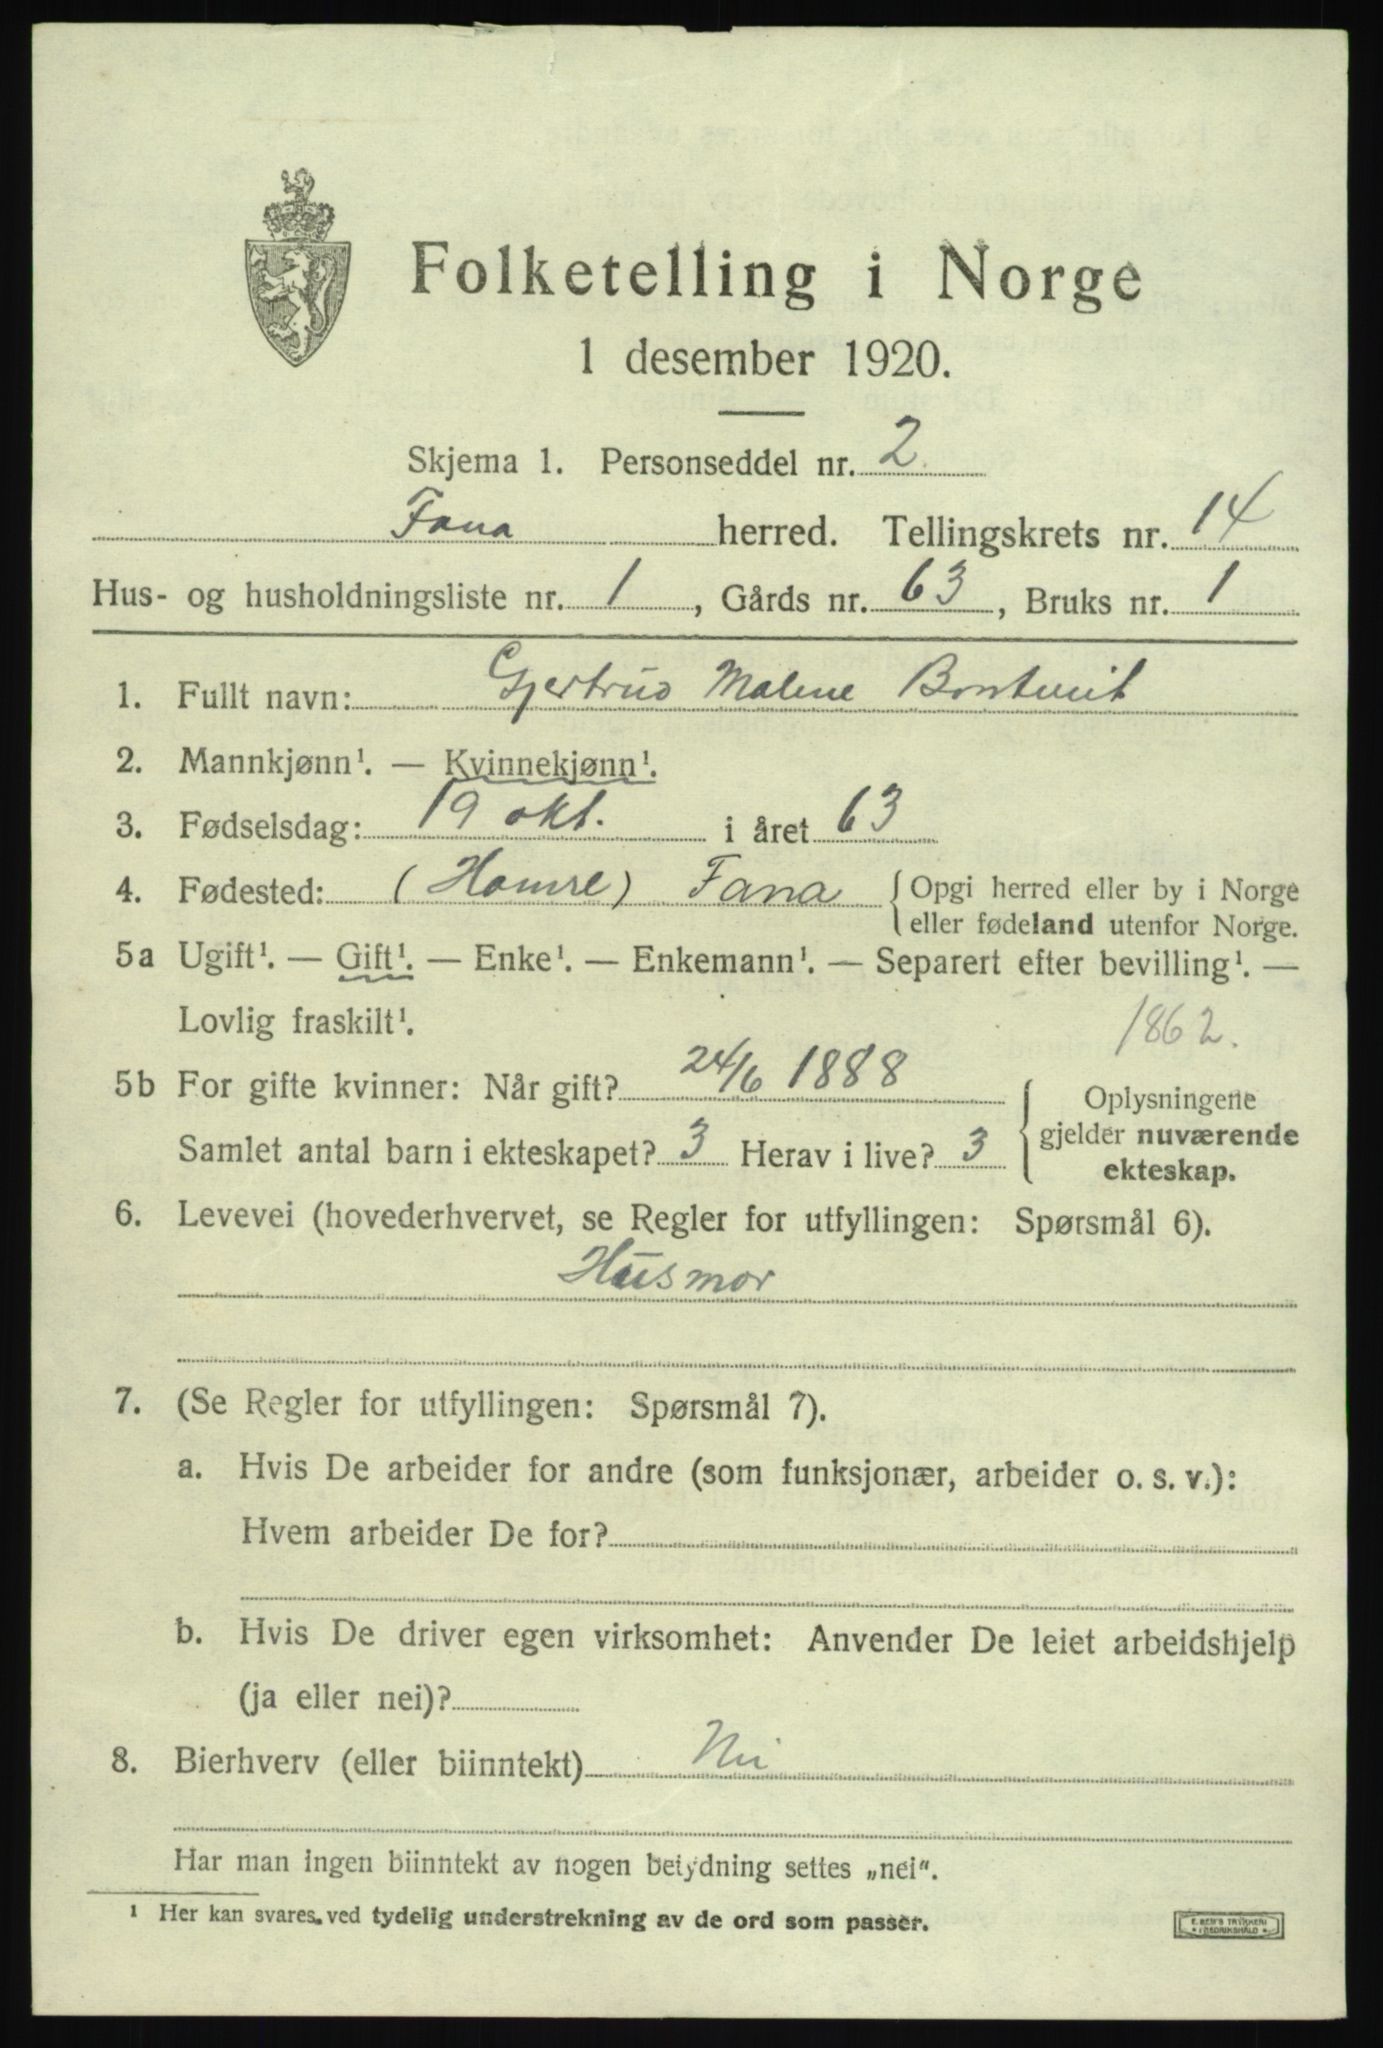 Folketelling i Norge
1 desember 1920.
Skjema 1. Personseddel nr. 2
Fana herred. Tellingskrets nr. 14
Hus- og husholdningsliste nr. 1, Gårds nr. 63, Bruks nr. 1
1. Fullt navn: Gjertrud Malene
2. Mannkjønn¹. — Kvinnekjønn¹.
3. Fødselsdag: 19 okt. i året 63
4. Fødested: (Hamre) Fana { Opgi herred eller by i Norge
eller fødeland utenfor Norge.
5a Ugift¹. — Gift¹. — Enke¹. — Enkemann¹. — Separert efter bevilling¹. —
Lovlig fraskilt¹.
1862.
5b For gifte kvinner: Når gift? 24/6 1888
Samlet antal barn i ekteskapet? 3 Herav i live? 3
Oplysningene
gjelder nuværende
ekteskap.
6. Levevei (hovederhvervet, se Regler for utfyllingen: Spørsmål 6).
Husmor
7. (Se Regler for utfyllingen: Spørsmål 7).
a. Hvis De arbeider for andre (som funksjonær, arbeider o. s. v.):
Hvem arbeider De for?
b. Hvis De driver egen virksomhet: Anvender De leiet arbeidshjelp
(ja eller nei)?
8. Bierhverv (eller biinntekt) Nei
Har man ingen biinntekt av nogen betydning settes „nei".
¹ Her kan svares ved tydelig understrekning av de ord som passer.